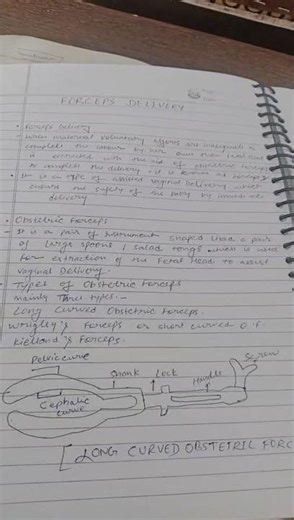 FORCEPS DELIVERY
• Forceps Delivery
- when maternal voluntary efforts are inadequate to
complete the labour by her own then
is with the aid of obstetric forceps
to complete the delivery, it is known as forceps
• It is a type of assisted vaginal delivery which
ensure the safety of the baby by
delivery
• Obstetric Forceps
- It is a pair of instrument shaped like a pair
of large spoons / salad tongs which is used
for extraction of the Fetal Head to assist
vaginal Delivery.
• Types of Obstetric Forceps
mainly Three types:-
Long Curved Obstetric Forceps.
Wrigley's Forceps or short curved O.F.
Kielland's Forceps.
Pelvic curve
Shank
Lock
Handle
Screw
Cephalic
curve
[LONG CURVED OBSTETRIC FORC